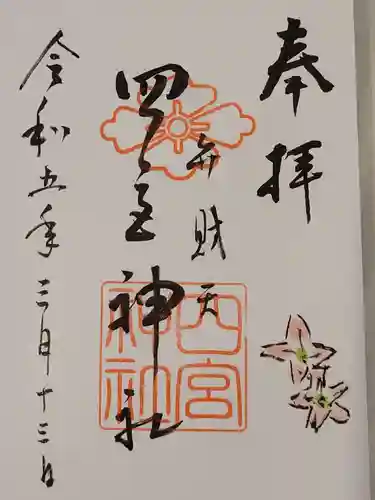 奉拝
弁財天
四宮神社
四宮
神社
令和五年三月十三日